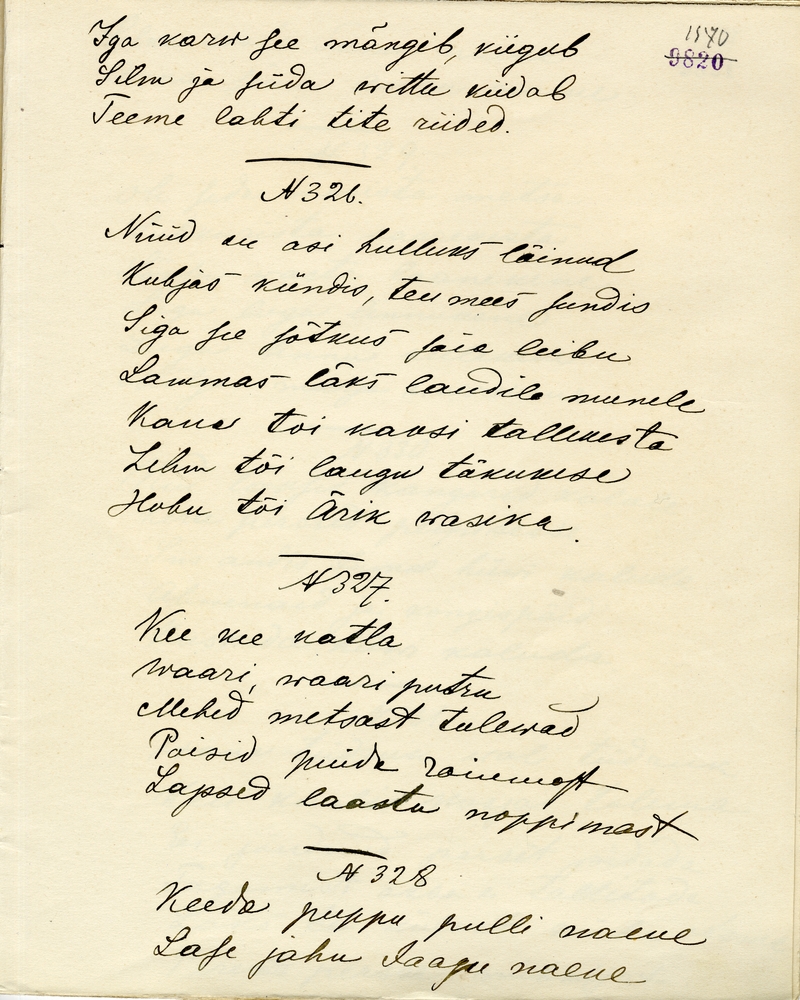 1570
9820
Iga karw see mängib, kiigub
Silm ja süda wittu kiidab
Teeme lahti tite riided.
N 326.
Nüüd on asi hulluks läinud
Kubjas kündis, teumees sundis
Siga see sõtkus saia leibu
Lammas läks laudile munele
Kana tõi kaksi tallekesta
Lehm tõi laugu täkukese
Hobu tõi Ärik wasika.
N 327.
Kee kee katla
waari, waari putru
Mehed metsast tulewad
Poisid puida raiumast
Lapsed laastu noppimast
N 328
Keeda puppu pulli naene
Lase jahu Jaagu naene